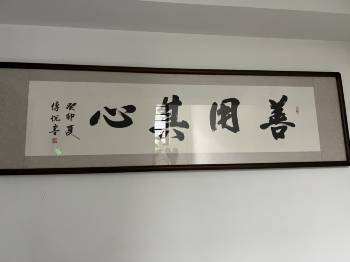 善用其心
癸卯夏
傅悦书